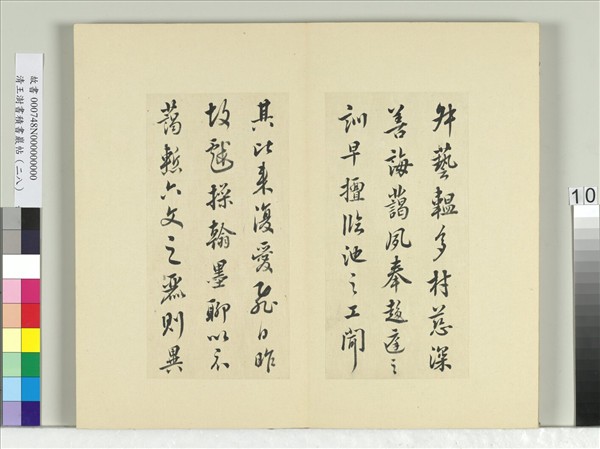 藝韞多材慈深
善誨藹夙奉趨庭之
訓早擅臨池之工聞
其比來復愛飛白昨
故戲操翰墨聊以示
藹慙六文之麗則異
故書 000748N000000000
清王澍書積書巖帖（二八）
10